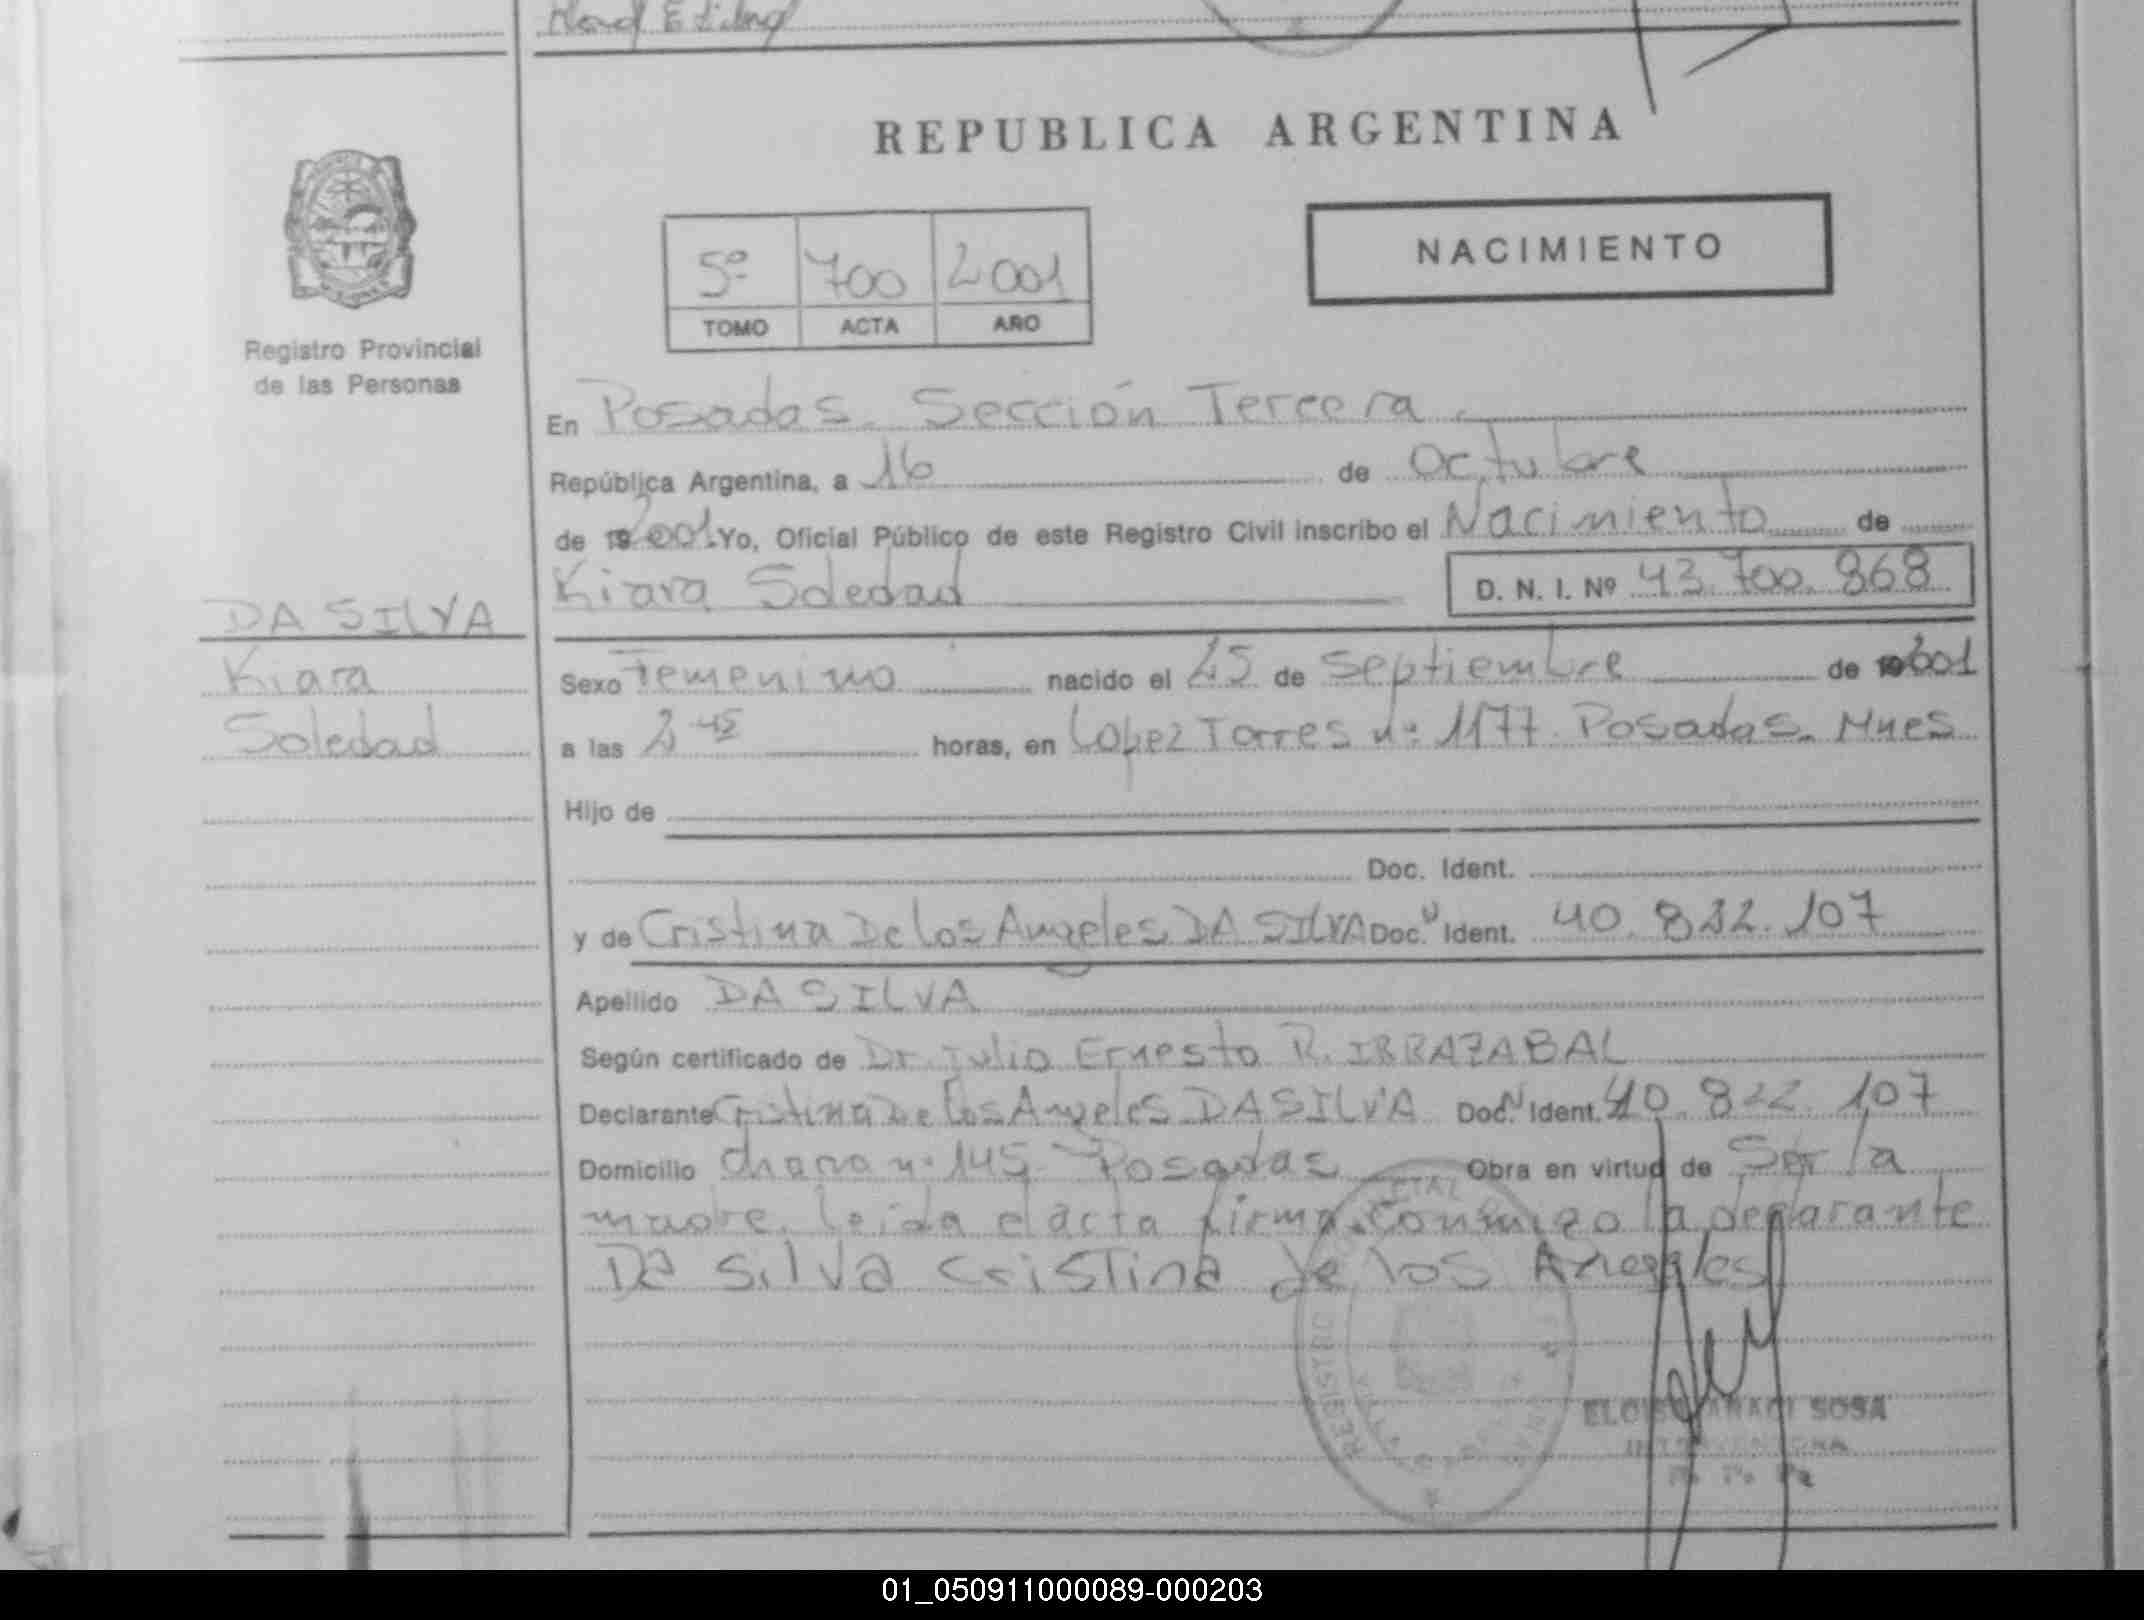 REPUBLICA ARGENTINA
NACIMIENTO
5º 700 2001
TOMO ACTA AÑO
Registro Provincial
de las Personas
En Posadas. Sección Tercera
República Argentina, a 16 de Octubre
de 2001 Yo, Oficial Público de este Registro Civil inscribo el Nacimiento de
Kiara Soledad D. N. I. Nº 43.700.868
DA SILVA
Kiara
Soledad
Sexo Femenino nacido el 25 de Septiembre de 2001
a las 2 45 horas, en Lopez Torres nº 1177. Posadas. Mnes
Hijo de
Doc. Ident.
y de Cristina De los Angeles DA SILVA Doc. Ident. 40.822.107
Apellido DA SILVA
Según certificado de Dr. Julio Ernesto R. IRRAZABAL
Declarante Cristina De los Angeles DA SILVA Doc. Ident. 40.822.107
Domicilio chacra nº 145 Posadas Obra en virtud de Ser la
madre. leída el acta firma conmigo la declarante
Da Silva Cristina de los Angeles
REGISTRO
SOSA
01_050911000089-000203